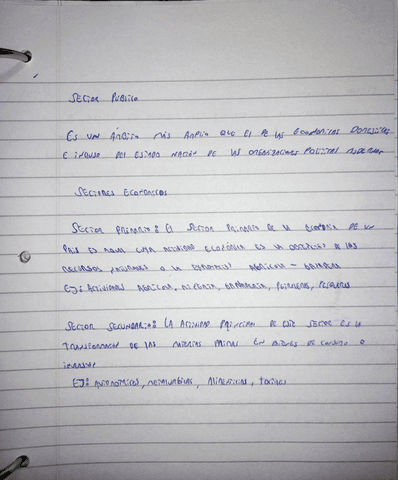 SECTOR PUBLICO
ES UN AMBITO MÁS AMPLIO QUE EL DE LAS ECONOMIAS DOMESTICAS
E INCLUSO DEL ESTADO NACIÓN DE LAS ORGANIZACIONES POLITICAS
SECTORES ECONOMICOS
SECTOR PRIMARIO: EL SECTOR PRIMARIO DE LA ECONOMIA DE UN
PAIS ES AQUEL CUYA ACTIVIDAD ECONÓMICA ES LA DE LOS
RECURSOS NATURALES O LA AGRICOLA - GANADERA
EJ: ACTIVIDADES AGRICOLA, MINERIA, GANADERIA, PESQUEROS
SECTOR SECUNDARIO: LA ACTIVIDAD PRINCIPAL DE ESTE SECTOR ES LA
TRANSFORMACION DE LAS MATERIAS PRIMAS EN BIENES DE CONSUMO O
INVERSION
EJ: AUTOMOTRICES, METALURGICAS, ALIMENTICIAS, TEXTILES